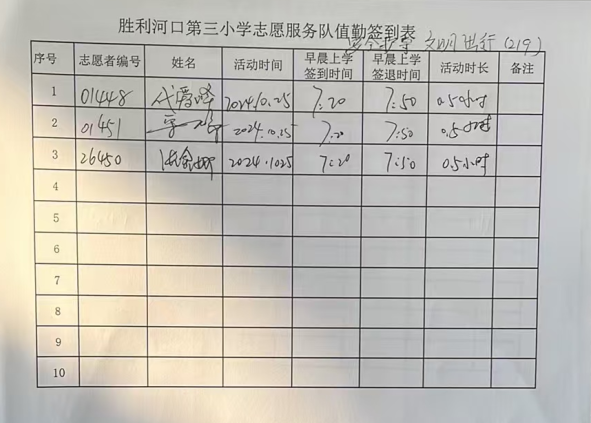 胜利河口第三小学志愿服务队值勤签到表
安全 文明出行(219)
序号 志愿者编号 姓名 活动时间 早晨上学签到时间 早晨上学签退时间 活动时长 备注
1 01448 2024.10.25 7:20 7:50 0.5小时
2 01451 2024.10.25 7:20 7:50 0.5小时
3 26450 2024.1025 7:20 7:50 0.5小时
4
5
6
7
8
9
10